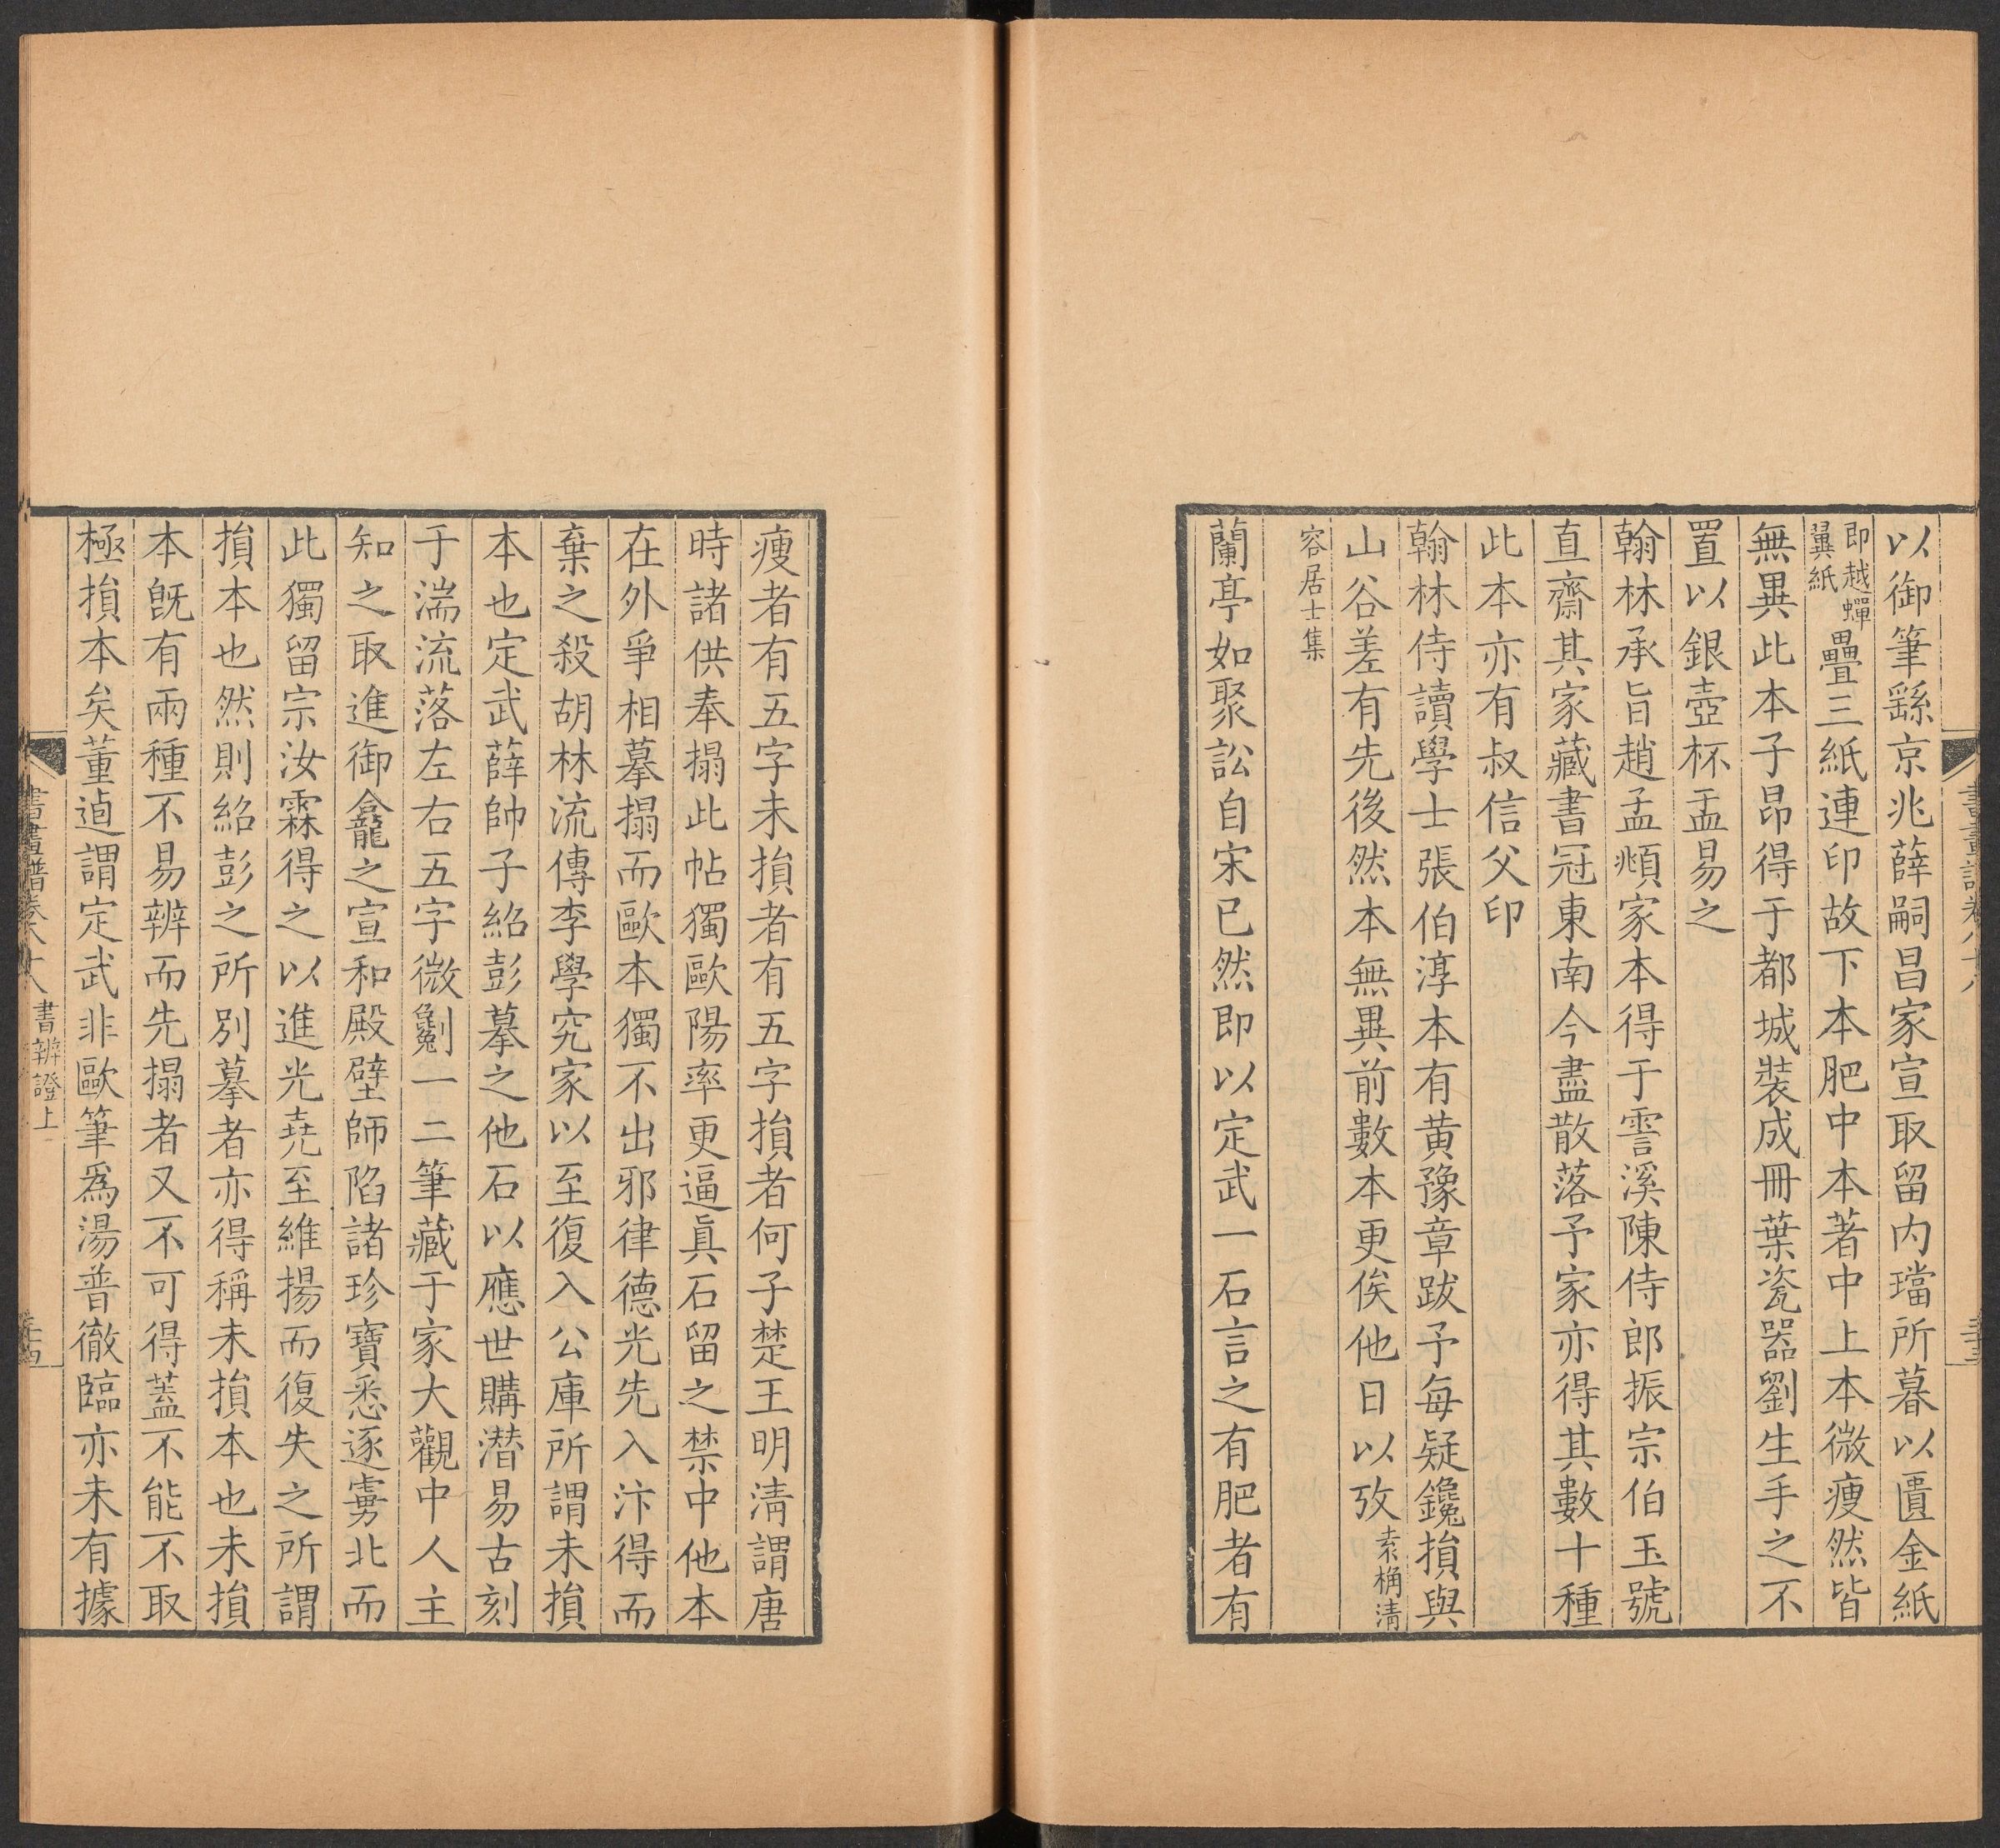 書畫譜卷八十八
三十三
以御筆繇京兆薛嗣昌家宣取留内璫所暮以匱金紙
即越蟬翼紙疊三紙連印故下本肥中本著中上本微瘦然皆
無異此本子昂得于都城裝成冊葉瓷器劉生手之不
置以銀壺杯盂易之
翰林承旨趙孟頫家本得于霅溪陳侍郎振宗伯玉號
直齋其家藏書冠東南今盡散落予家亦得其數十種
此本亦有叔信父印
翰林侍讀學士張伯淳本有黄豫章跋予每疑鑱損與
山谷差有先後然本無異前數本更俟他日以攷袁桷清
容居士集
蘭亭如聚訟自宋已然即以定武一石言之有肥者有
瘦者有五字未損者有五字損者何子楚王明清謂唐
時諸供奉搨此帖獨歐陽率更逼眞石留之禁中他本
在外爭相摹搨而歐本獨不出邪律德光先入汴得而
棄之殺胡林流傳李學究家以至復入公庫所謂未損
本也定武薛帥子紹彭摹之他石以應世購潛易古刻
于湍流落左右五字微劖一二筆藏于家大觀中人主
知之取進御龕之宣和殿壁師陷諸珍寶悉逐虜北而
此獨留宗汝霖得之以進光堯至維揚而復失之所謂
損本也然則紹彭之所別摹者亦得稱未損本也未損
本旣有兩種不易辨而先搨者又不可得蓋不能不取
極損本矣董逌謂定武非歐筆爲湯普徹臨亦未有據
書畫譜卷八十八
書辨證上
三十四